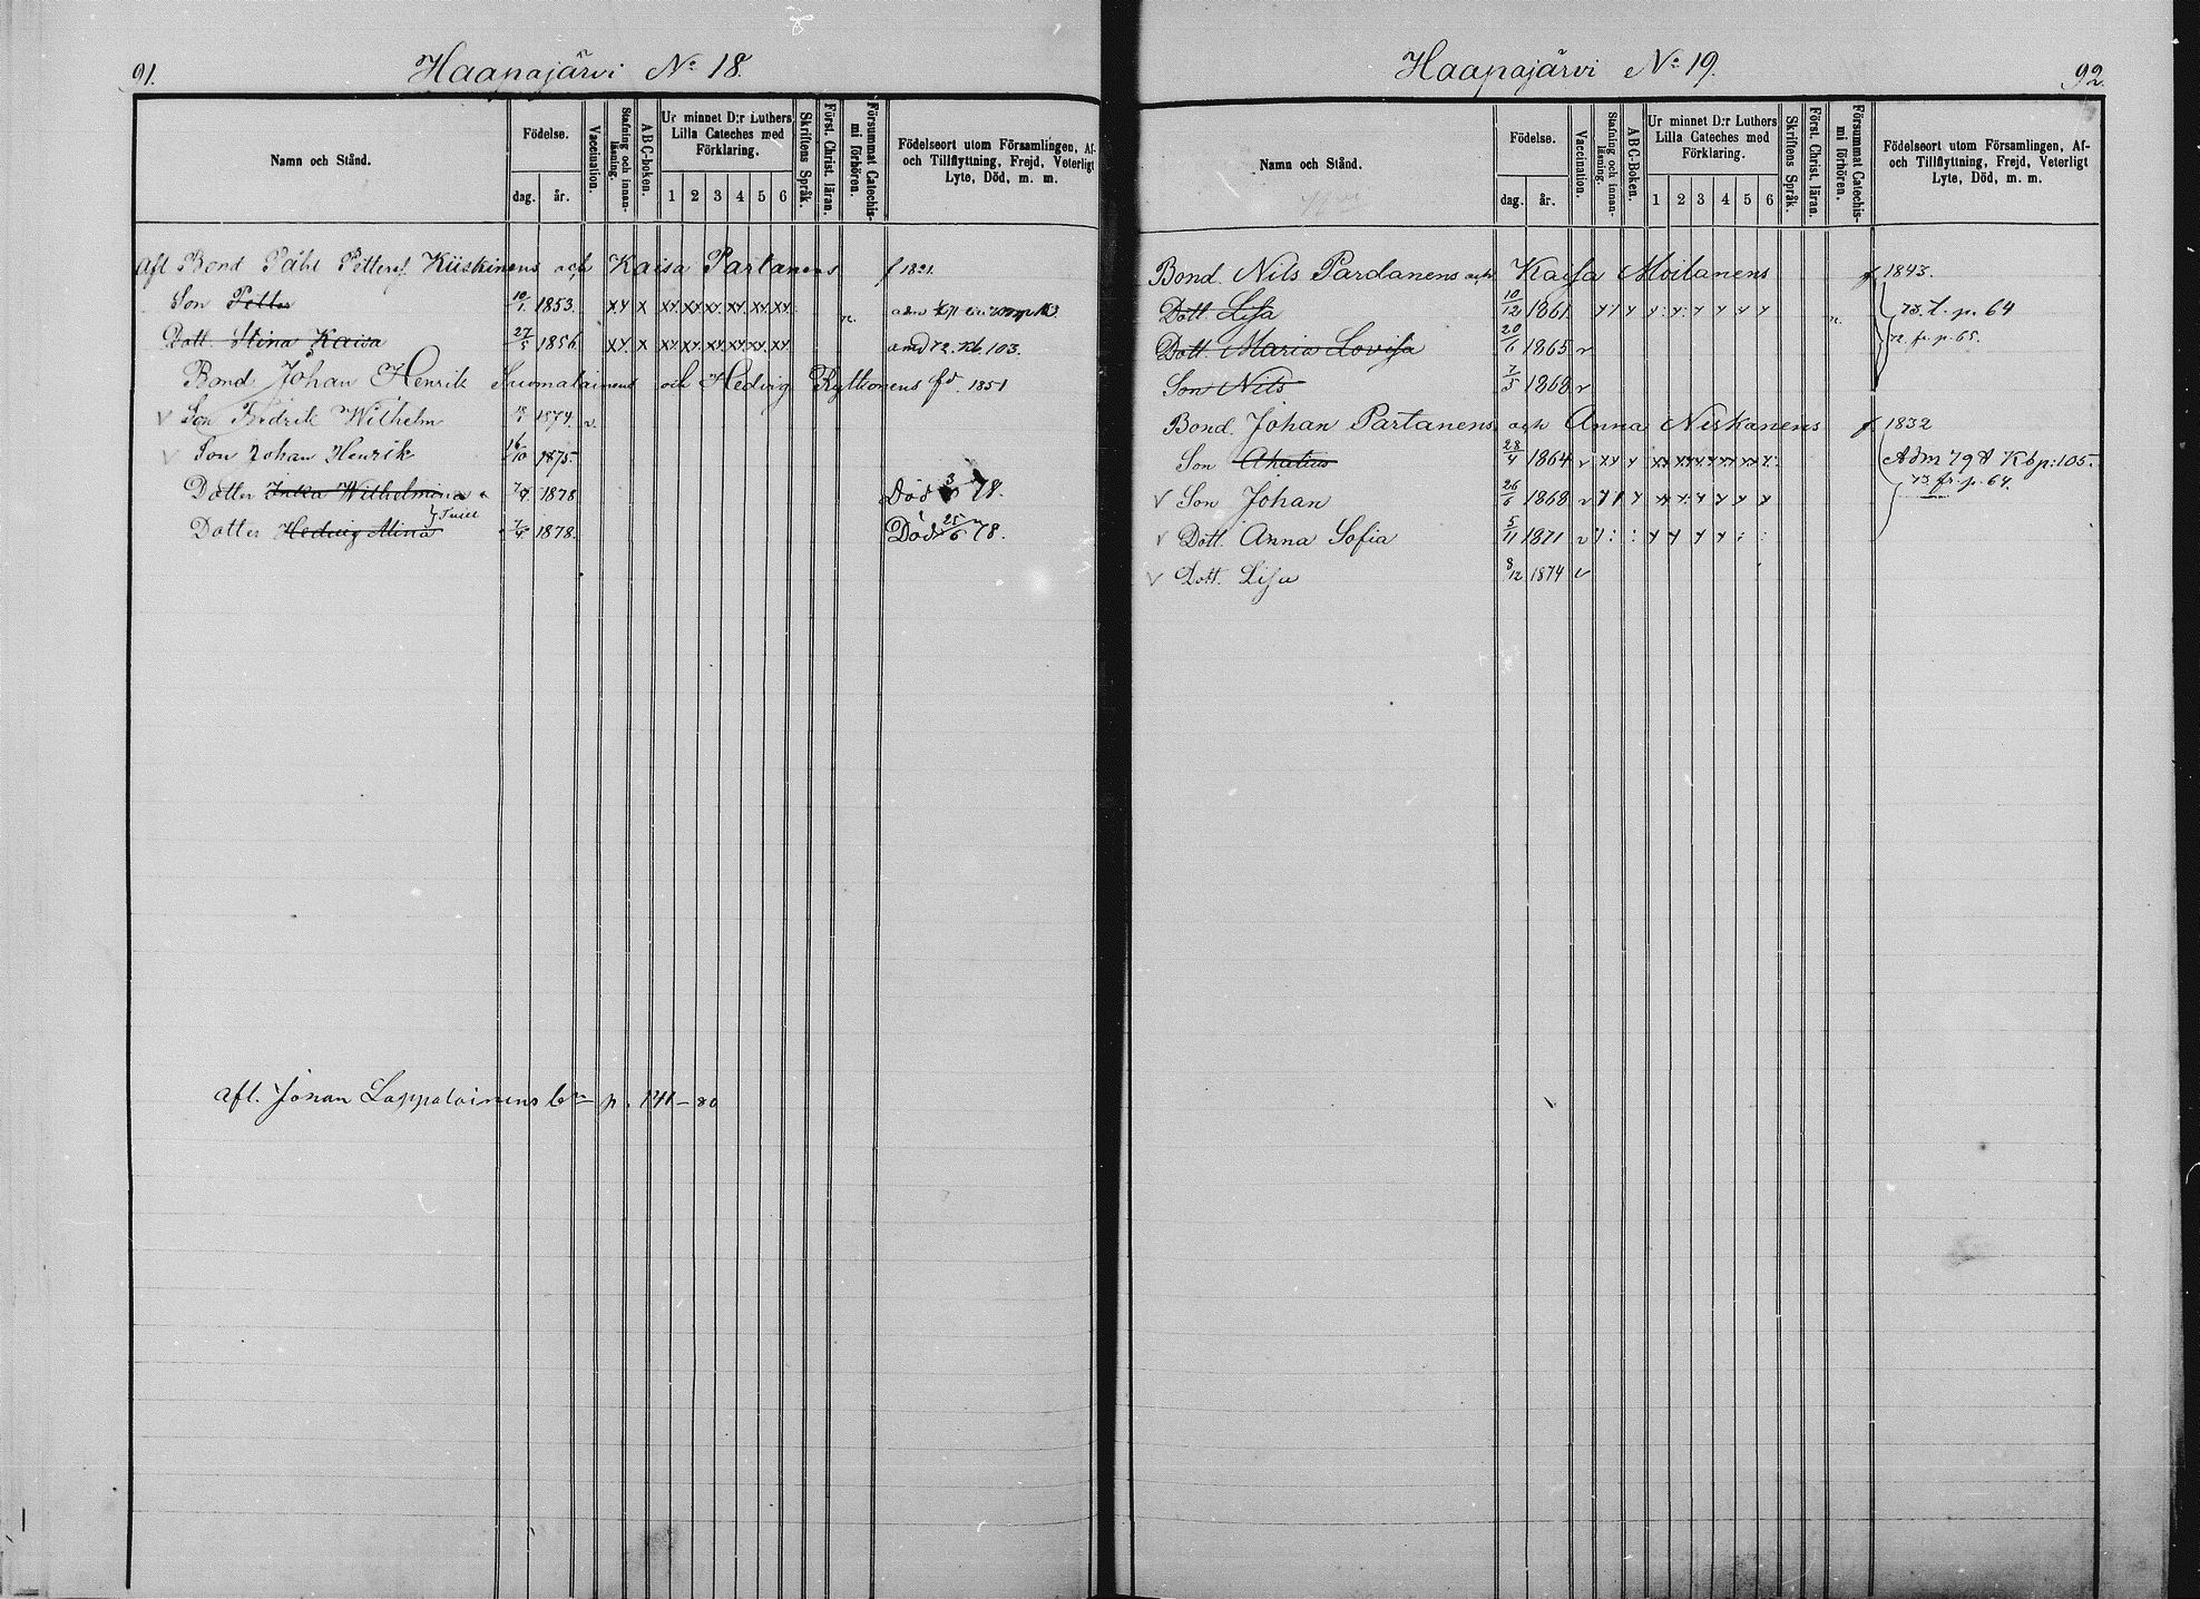 91.
Haapajärvi No 18.
Namn och Stånd.
Födelse.
dag.
år.
Vaccination.
Stafning och innan-läsning.
ABC-boken.
Ur minnet D:r Luthers
Lilla Cateches med
Förklaring.
1 2 3 4 5 6
Skriftens Språk.
Först. Christ. läran.
Försummat Catechis-
mi förhören.
Födelseort utom Församlingen, Af-
och Tillflyttning, Frejd, Veterligt
Lyte, Död, m. m.
Afl Bond Påhl Petters. Kiiskinens och Kaisa Partanens f 1821.
Son Petter 10/1 1853. xy x xy. xy. xy. xy. xy. xy. n.
Dott. Stina Kaisa 27/5 1856 xy. x xy. xy. xy. xy. xy. xy. amd 72. Kb. 103.
Bond Johan Henrik Suomalainens och Hedvig Kyttönens fd. 1851
v Son Fredrik Wilhelm 1874. v.
v Son Johan Henrik 16/10 1875.
Dotter Wilhelmina 7/4 1878 Död 78.
} Tvill
Dotter Hedvig Alina 7/4 1878. Död 25/6 78.
Afl. Johan Lappalainens p. 141-80
Haapajärvi No 19.
92.
Namn och Stånd.
Födelse.
dag.
år.
Vaccination.
Stafning och innan-läsning.
ABC-Boken.
Ur minnet D:r Luthers
Lilla Cateches med
Förklaring.
1 2 3 4 5 6
Skriftens Språk.
Först. Christ. läran.
Försummat Catechis-
mi förhören.
Födelseort utom Församlingen, Af-
och Tillflyttning, Frejd, Veterligt
Lyte, Död, m. m.
Bond. Nils Pardanens och Kaisa Moilanens f 1843.
Dott. Lisa 10/12 1861 y y y y: y: y y y y n. 73. t. p. 64
Dott. Maria Lovisa 20/6 1865 v 72. fr. p. 65.
Son Nils 7/5 1868 v
Bond. Johan Partanens och Anna Niskanens f. 1832
Son Akatius 28/4 1864 v Adm 79 Kb p: 105.
v Son Johan 26/6 1868 v 73 fr. p. 64.
v Dott. Anna Sofia 5/11 1871 v y: : y y y y : :
v Dott. Lisa 8/12 1874 v